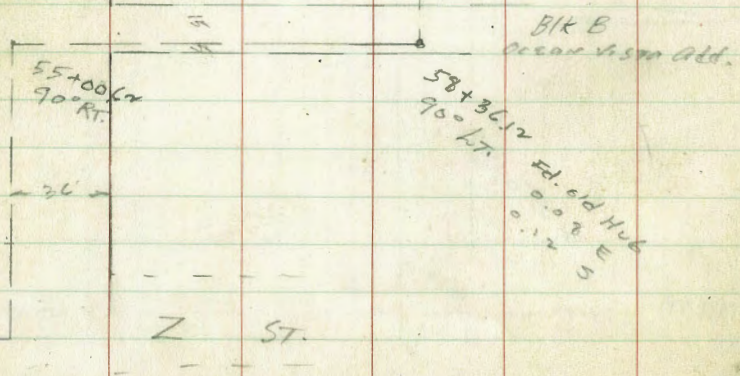 Blk B
Ocean Vista Add.
55+00.62
90° RT.
58+36.12
90° LT.
Fd. old Hub
0.08 E
0.12 S
36
Z ST.